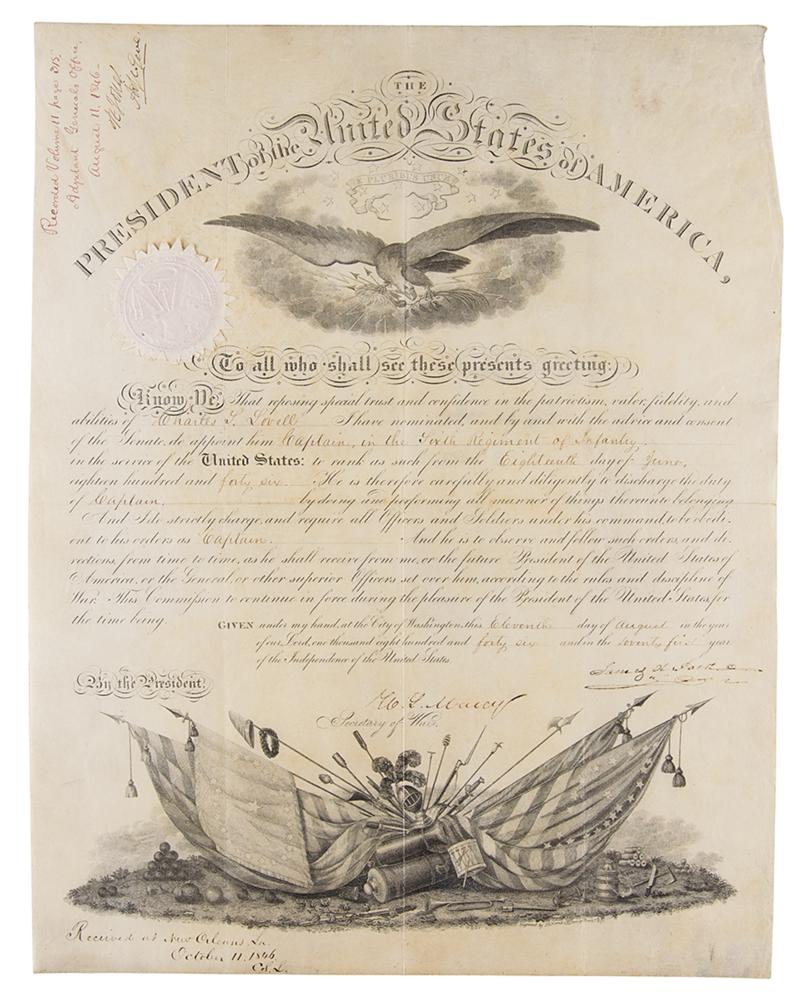 Recorded Volume 11 page 315.
Adjutant Generals Office,
August 11, 1846.
THE
PRESIDENT of the United States of AMERICA,
E PLURIBUS UNUM
To all who shall see these presents greeting:
Know Ye, That reposing special trust and confidence in the patriotism, valor, fidelity, and
abilities of Charles S. Lovell I have nominated, and by and with the advice and consent
of the Senate, do appoint him Captain, in the Sixth Regiment of Infantry.
in the service of the United States: to rank as such from the Eighteenth day of June,
eighteen hundred and forty six. He is therefore carefully and diligently to discharge the duty
of Captain. by doing and performing all manner of things thereunto belonging
And I do strictly charge, and require all Officers and Soldiers under his command, to be obedi-
ent to his orders as Captain. And he is to observe and follow such orders, and di-
rections, from time to time, as he shall receive from me, or the future President of the United States of
America, or the General, or other superior Officers set over him, according to the rules and discipline of
War. This Commission to continue in force during the pleasure of the President of the United States, for
the time being.
GIVEN under my hand, at the City of Washington, this Eleventh day of August in the year
of our Lord, one thousand eight hundred and forty six and in the seventy first year
of the Independence of the United States.
By the President,
James K. Polk
W. L. Marcy
Secretary of War.
Received at New Orleans La.
October 11. 1846.
C.S.L.